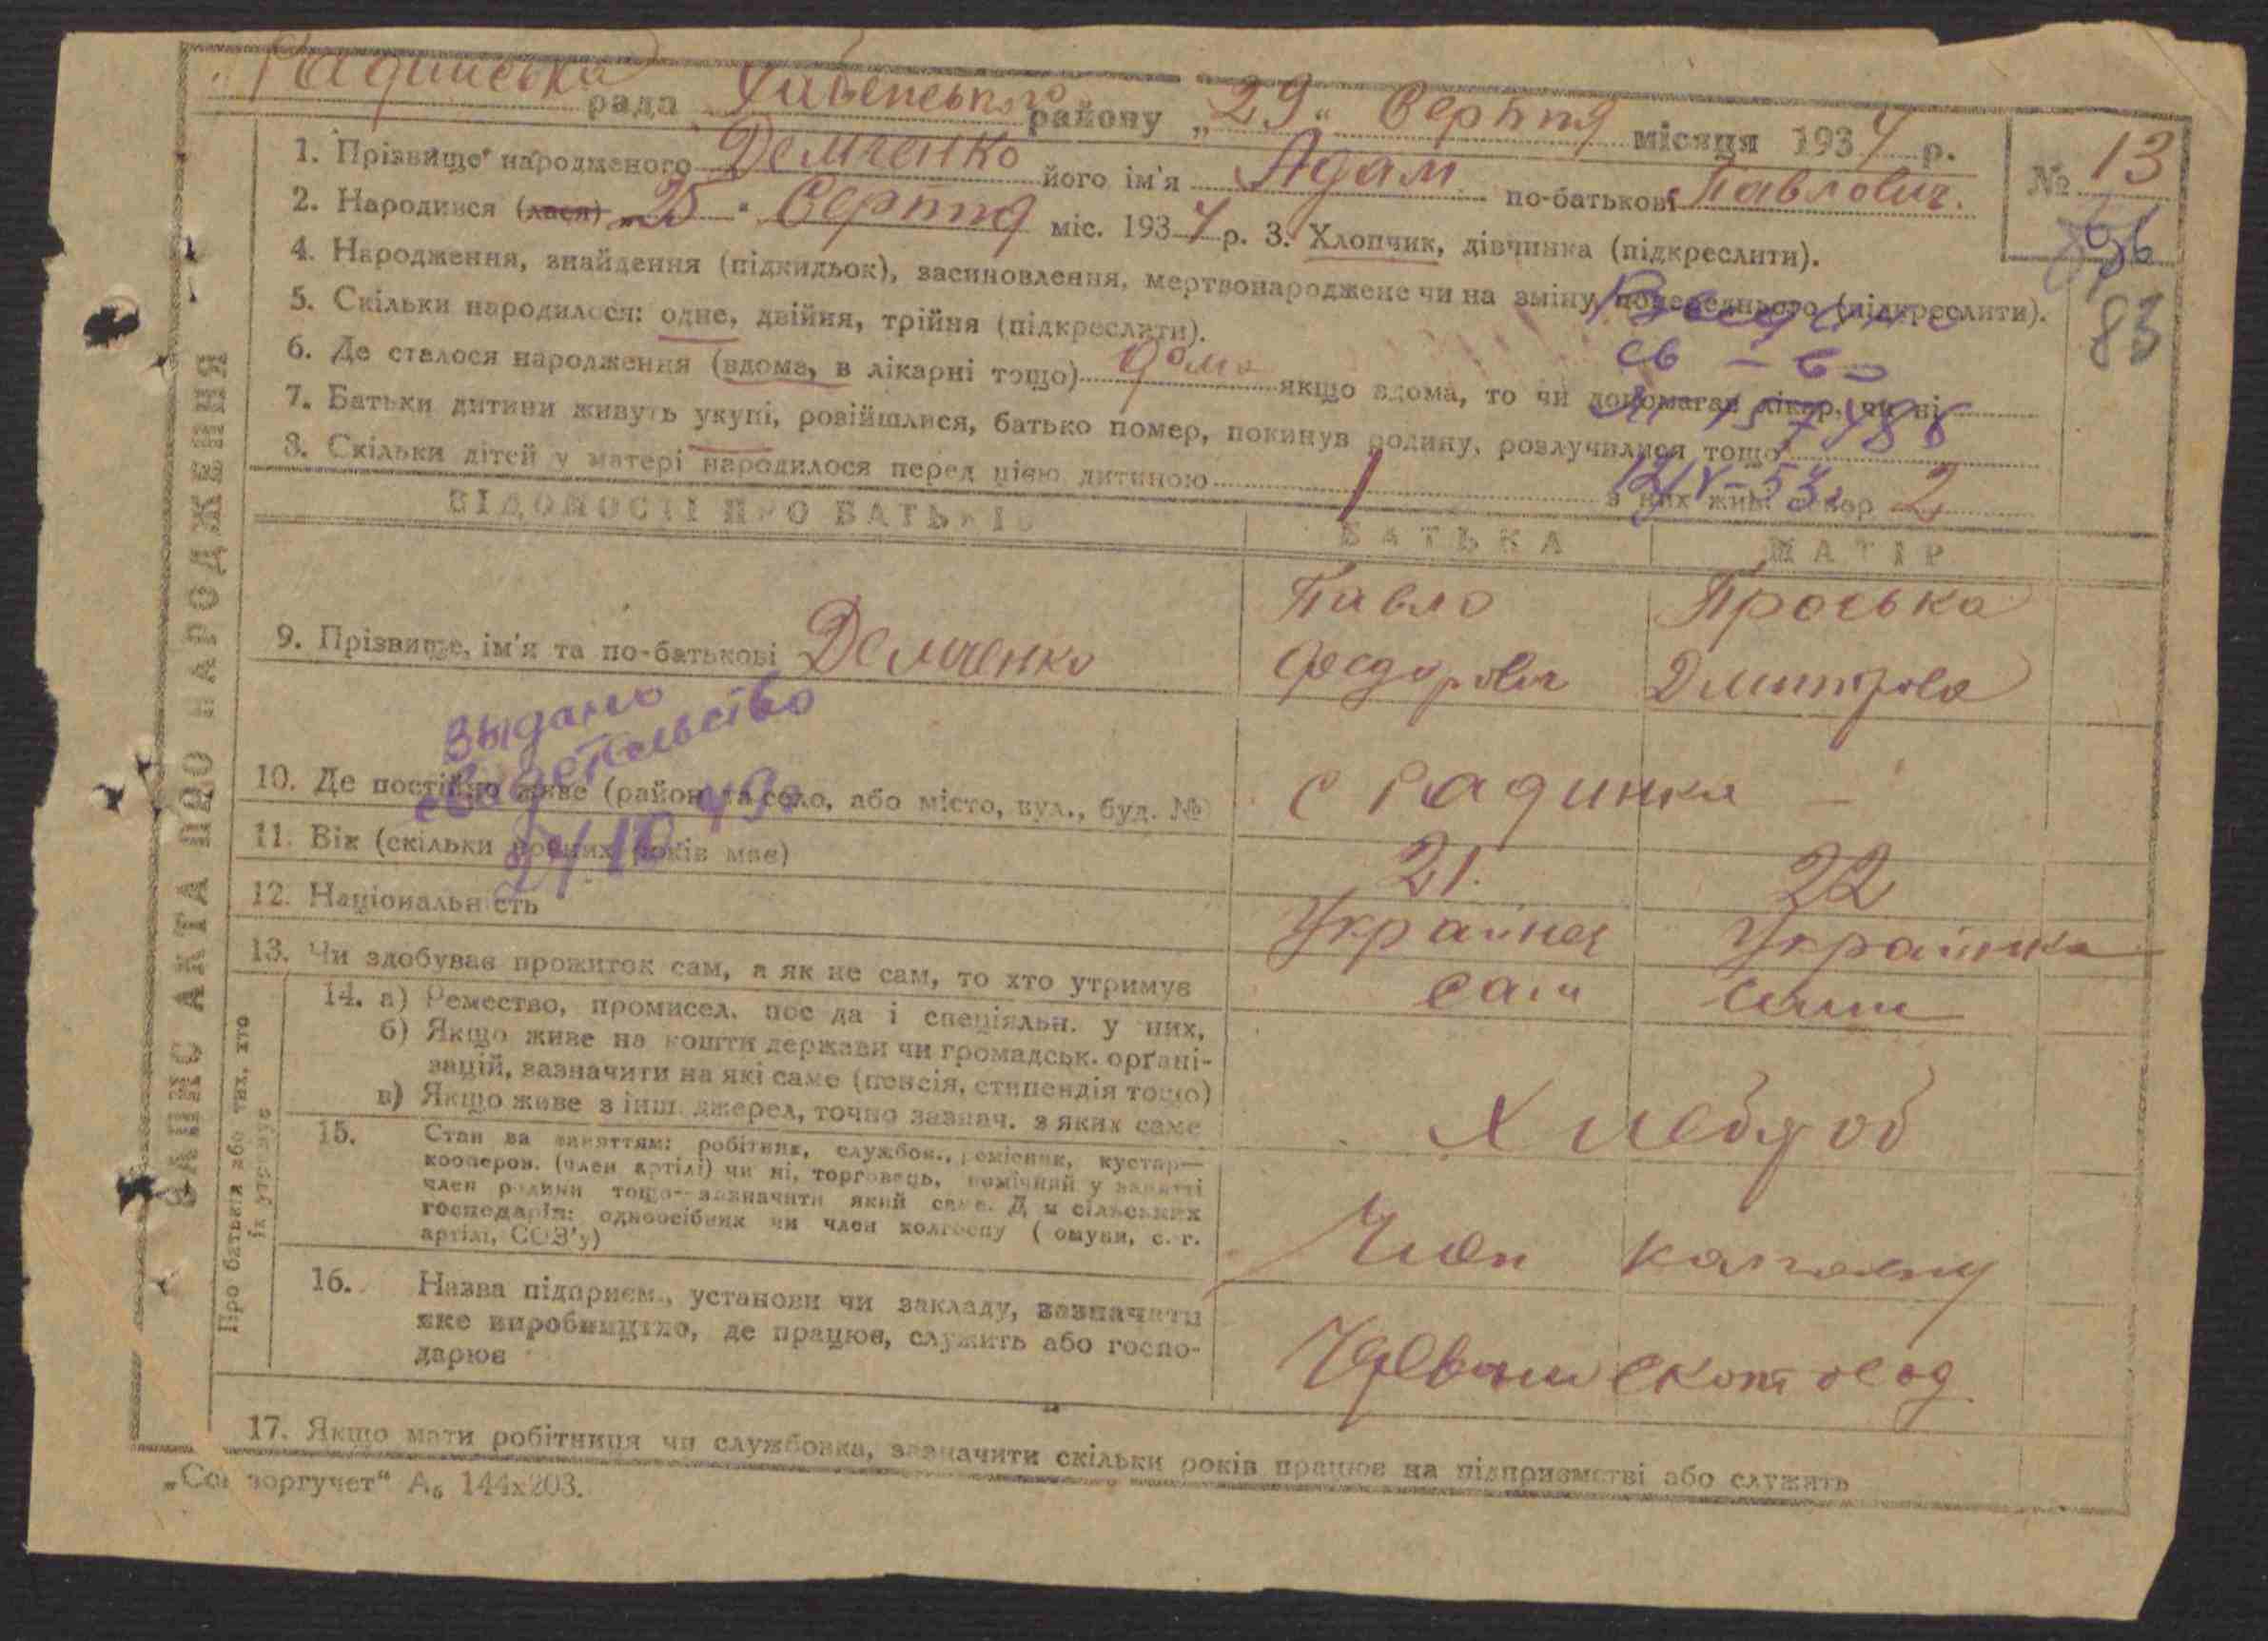 Радинська рада Хабенського району „29“ Серпня місяця 1934 р.
№ 13
1. Прізвище народженого Демченко його ім'я Адам по-батькові Павлович.
2. Народився (лася) „25“ Серпня міс. 1934 р. 3. Хлопчик, дівчинка (підкреслити).
4. Народження, знайдення (підкидьок), засиновлення, мертвонароджене чи на зміну попереднього (підкреслити).
83
5. Скільки народилося: одне, двійня, трійня (підкреслити).
Выдано
св-во
6. Де сталося народження (вдома, в лікарні тощо) дома якщо вдома, то чи допомагав лікар, чи ні
7. Батьки дитини живуть укупі, розійшлися, батько помер, покинув родину, розлучилися тощо
8. Скільки дітей у матері народилося перед цією дитиною 1 з них жив. 2
ВІДОМОСТІ ПРО БАТЬКІВ
БАТЬКА
МАТІР
9. Прізвище, ім'я та по-батькові Демченко
Павло Федорович
Проська Дмитрова
выдано
свидетельство
10. Де постійно живе (район та село, або місто, вул., буд. №)
с Радинка
11. Вік (скільки повних років має)
21.
22
12. Національність
Українец
Українка
13. Чи здобував прожиток сам, а як не сам, то хто утримув
сам
сама
14. а) Ремество, промисел, посада і спеціяльн. у них,
б) Якщо живе на кошти держави чи громадськ. органі-
зацій, зазначити на які саме (пенсія, стипендія тощо)
в) Якщо живе з інш. джерел, точно зазнач. з яких саме
Хлебороб
15. Стан за заняттям: робітник, службов., ремісник, кустар—
кооперов. (член артілі) чи ні, торговець, помічний у занятті
член родини тощо—зазначити який саме. Для сільських
господарів: одноосібник чи член колгоспу (комуни, с. г.
артілі, СОЗ'у)
Член колгоспу
16. Назва підприєм., установи чи закладу, зазначити
яке виробництво, де працює, служить або госпо-
дарює
17. Якщо мати робітниця чи службовка, зазначити скільки років працює на підприємстві або служить
ЗАПИС АКТА ПРО НАРОДЖЕННЯ
Про батьків або тих, хто
їх утримує
144х203.